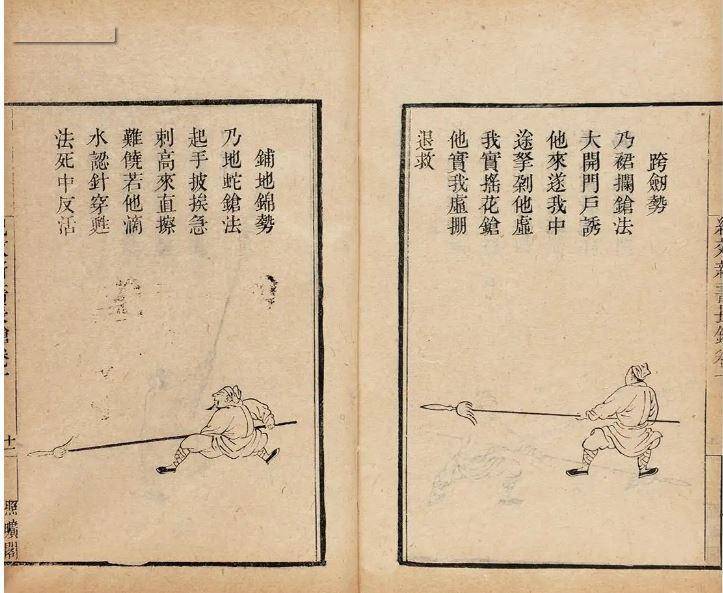 跨劔勢
乃裙攔鎗法
大開門戶誘
他來遂我中
途拏剁他虛
我實搖花鎗
他實我虛掤
退救
鋪地錦勢
乃地蛇鎗法
起手披挨急
刺高來直擦
難饒若他滴
水認針穿甦
法死中反活
照曠閣